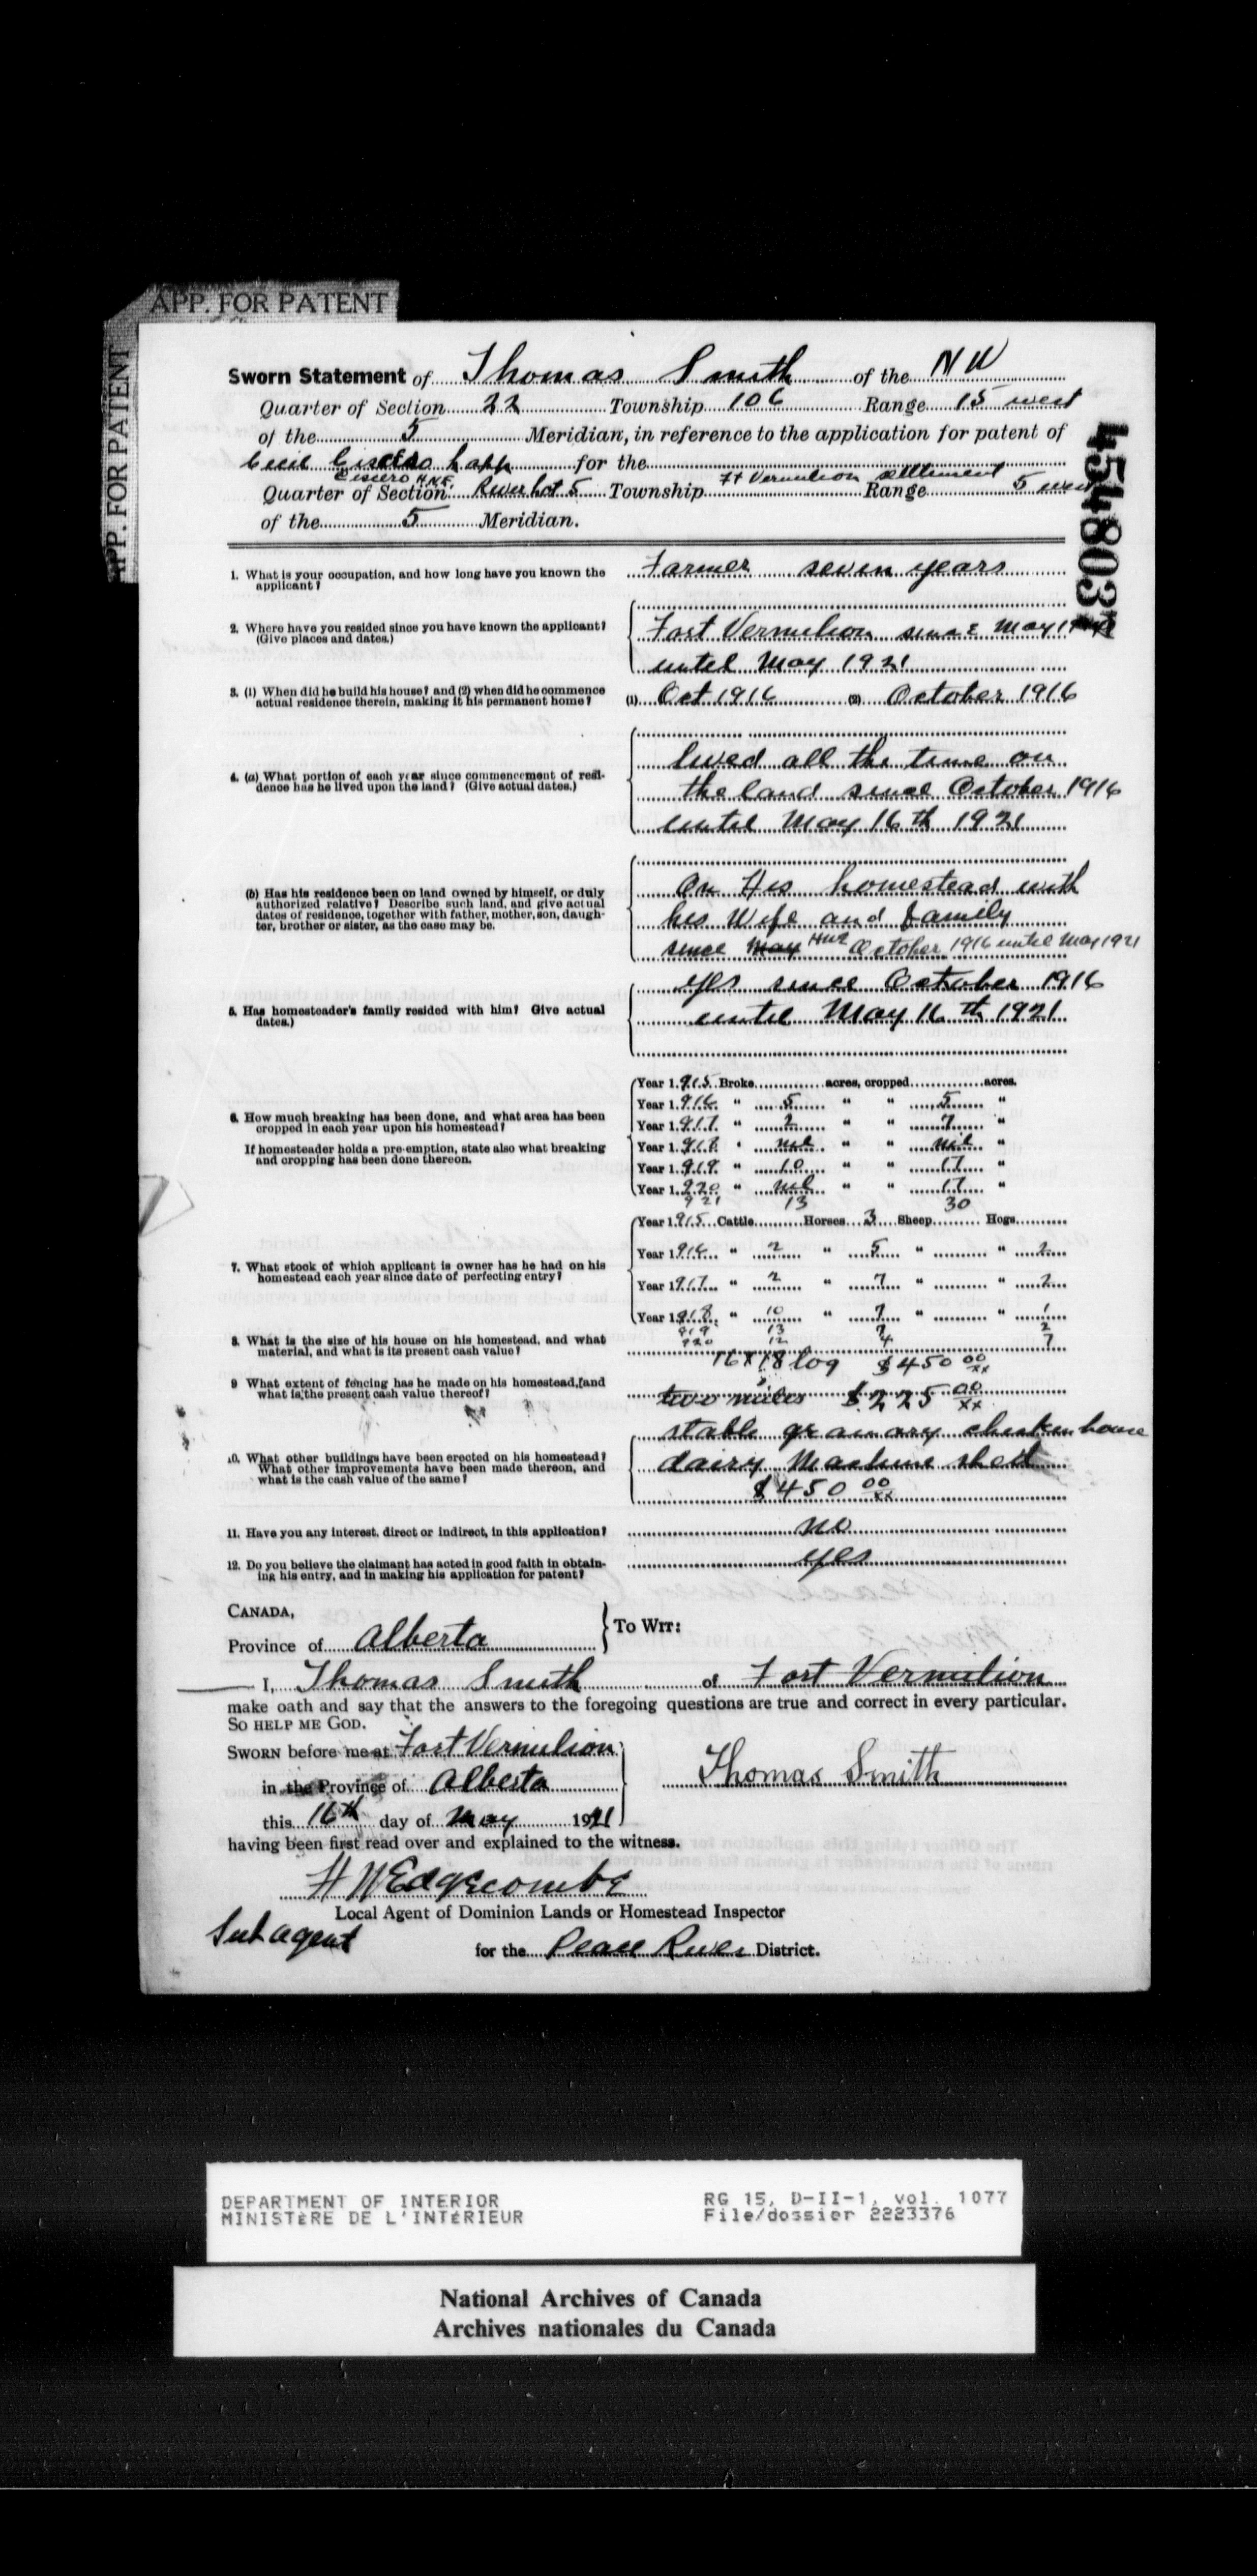 APP. FOR PATENT
APP. FOR PATENT
Sworn Statement of Thomas Smith of the NW
Quarter of Section 22 Township 106 Range 15 west
of the 5 Meridian, in reference to the application for patent of
Cecil Lapp for the
Cissero H.W.E.
Quarter of Section River Lot 5 Township Ft Vermilion settlement Range 5 west
of the 5 Meridian.
454803
1. What is your occupation, and how long have you known the applicant? Farmer seven years
2. Where have you resided since you have known the applicant? (Give places and dates.) Fort Vermilion since May
until May 1921
3. (1) When did he build his house? and (2) when did he commence actual residence therein, making it his permanent home? (1) Oct 1916 (2) October 1916
4. (a) What portion of each year since commencement of residence has he lived upon the land? (Give actual dates.) lived all the time on
the land since October 1916
until May 16th 1921
(b) Has his residence been on land owned by himself, or duly authorized relative? Describe such land, and give actual dates of residence, together with father, mother, son, daughter, brother or sister, as the case may be. On His homestead with
his Wife and family
since May HWE October 1916 until May 1921
5. Has homesteader's family resided with him? Give actual dates.) yes since October 1916
until May 16th 1921
6. How much breaking has been done, and what area has been cropped in each year upon his homestead?
If homesteader holds a pre-emption, state also what breaking and cropping has been done thereon.
Year 1915 Broke acres, cropped acres.
Year 1916 " 5 " " 5 "
Year 1917 " 2 " " 7 "
Year 1918 " nil " " nil "
Year 1919 " 10 " " 17 "
Year 1920 " nil " " 17 "
921 13 30
7. What stock of which applicant is owner has he had on his homestead each year since date of perfecting entry?
Year 1915 Cattle Horses 3 Sheep Hogs
Year 1916 " 2 " 5 " " 2
Year 1917 " 2 " 7 " " 2
Year 1918 " 10 " 7 " " 1
919 13 7 2
920 12 4 7
8. What is the size of his house on his homestead, and what material, and what is its present cash value? 16 x 18 log $450 00/xx
9 What extent of fencing has he made on his homestead, and what is the present cash value thereof? two miles $225 00/xx
10. What other buildings have been erected on his homestead? What other improvements have been made thereon, and what is the cash value of the same? stable granary chicken house
dairy Machine shed
$450 00/xx
11. Have you any interest, direct or indirect, in this application? no
12. Do you believe the claimant has acted in good faith in obtaining his entry, and in making his application for patent? yes
CANADA,
Province of Alberta } To Wit:
I, Thomas Smith of Fort Vermilion
make oath and say that the answers to the foregoing questions are true and correct in every particular.
SO HELP ME GOD.
SWORN before me at Fort Vermilion
in the Province of Alberta
this 16th day of May 1921
Thomas Smith
having been first read over and explained to the witness.
H W Edgecombe
Local Agent of Dominion Lands or Homestead Inspector
Sub agent
for the Peace River District.
DEPARTMENT OF INTERIOR
MINISTÈRE DE L'INTÉRIEUR
RG 15, D-II-1, vol. 1077
File/dossier 2223376
National Archives of Canada
Archives nationales du Canada